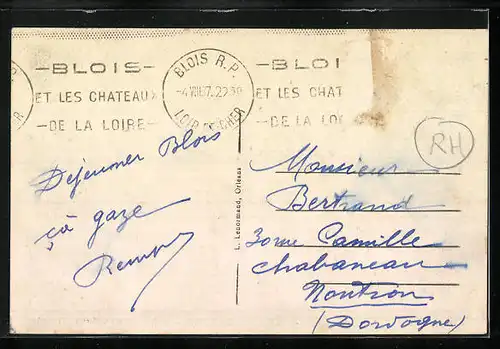 -BLOIS-
ET LES CHATEAUX
-DE LA LOIRE-
BLOIS R.P.
-4 VIII 37. 22 30
LOIR ET CHER
-BLOI
ET LES CHAT
-DE LA LOI
ER
RH
Dejeuner Blois
çà gaze
L. Lenormand, Orléans
Monsieur
Bertrand
30 rue Camille
Chabaneau
Nontron
(Dordogne)